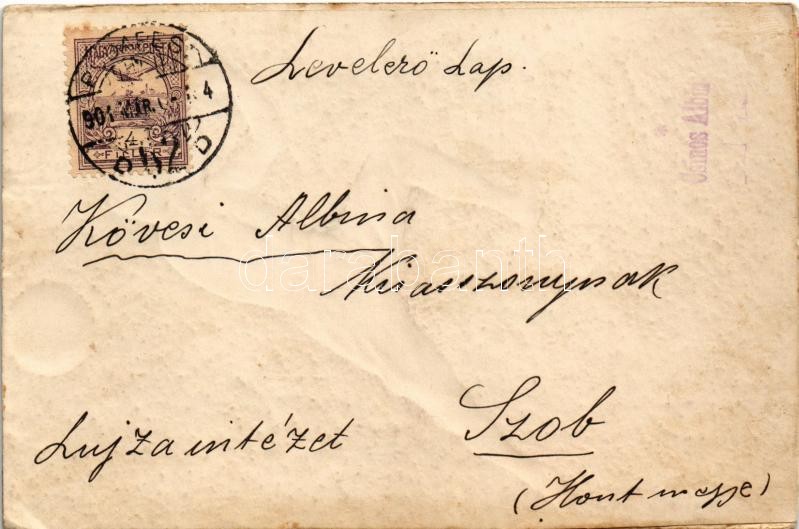 Levelező Lap.
Kövesi Albina
Kisasszonynak
Lujza intézet
Szob
(Hont megye)
MAGYAR KIR. POSTA
4
FILLÉR
BUDAPEST
901 MÁR.
4
darabanth